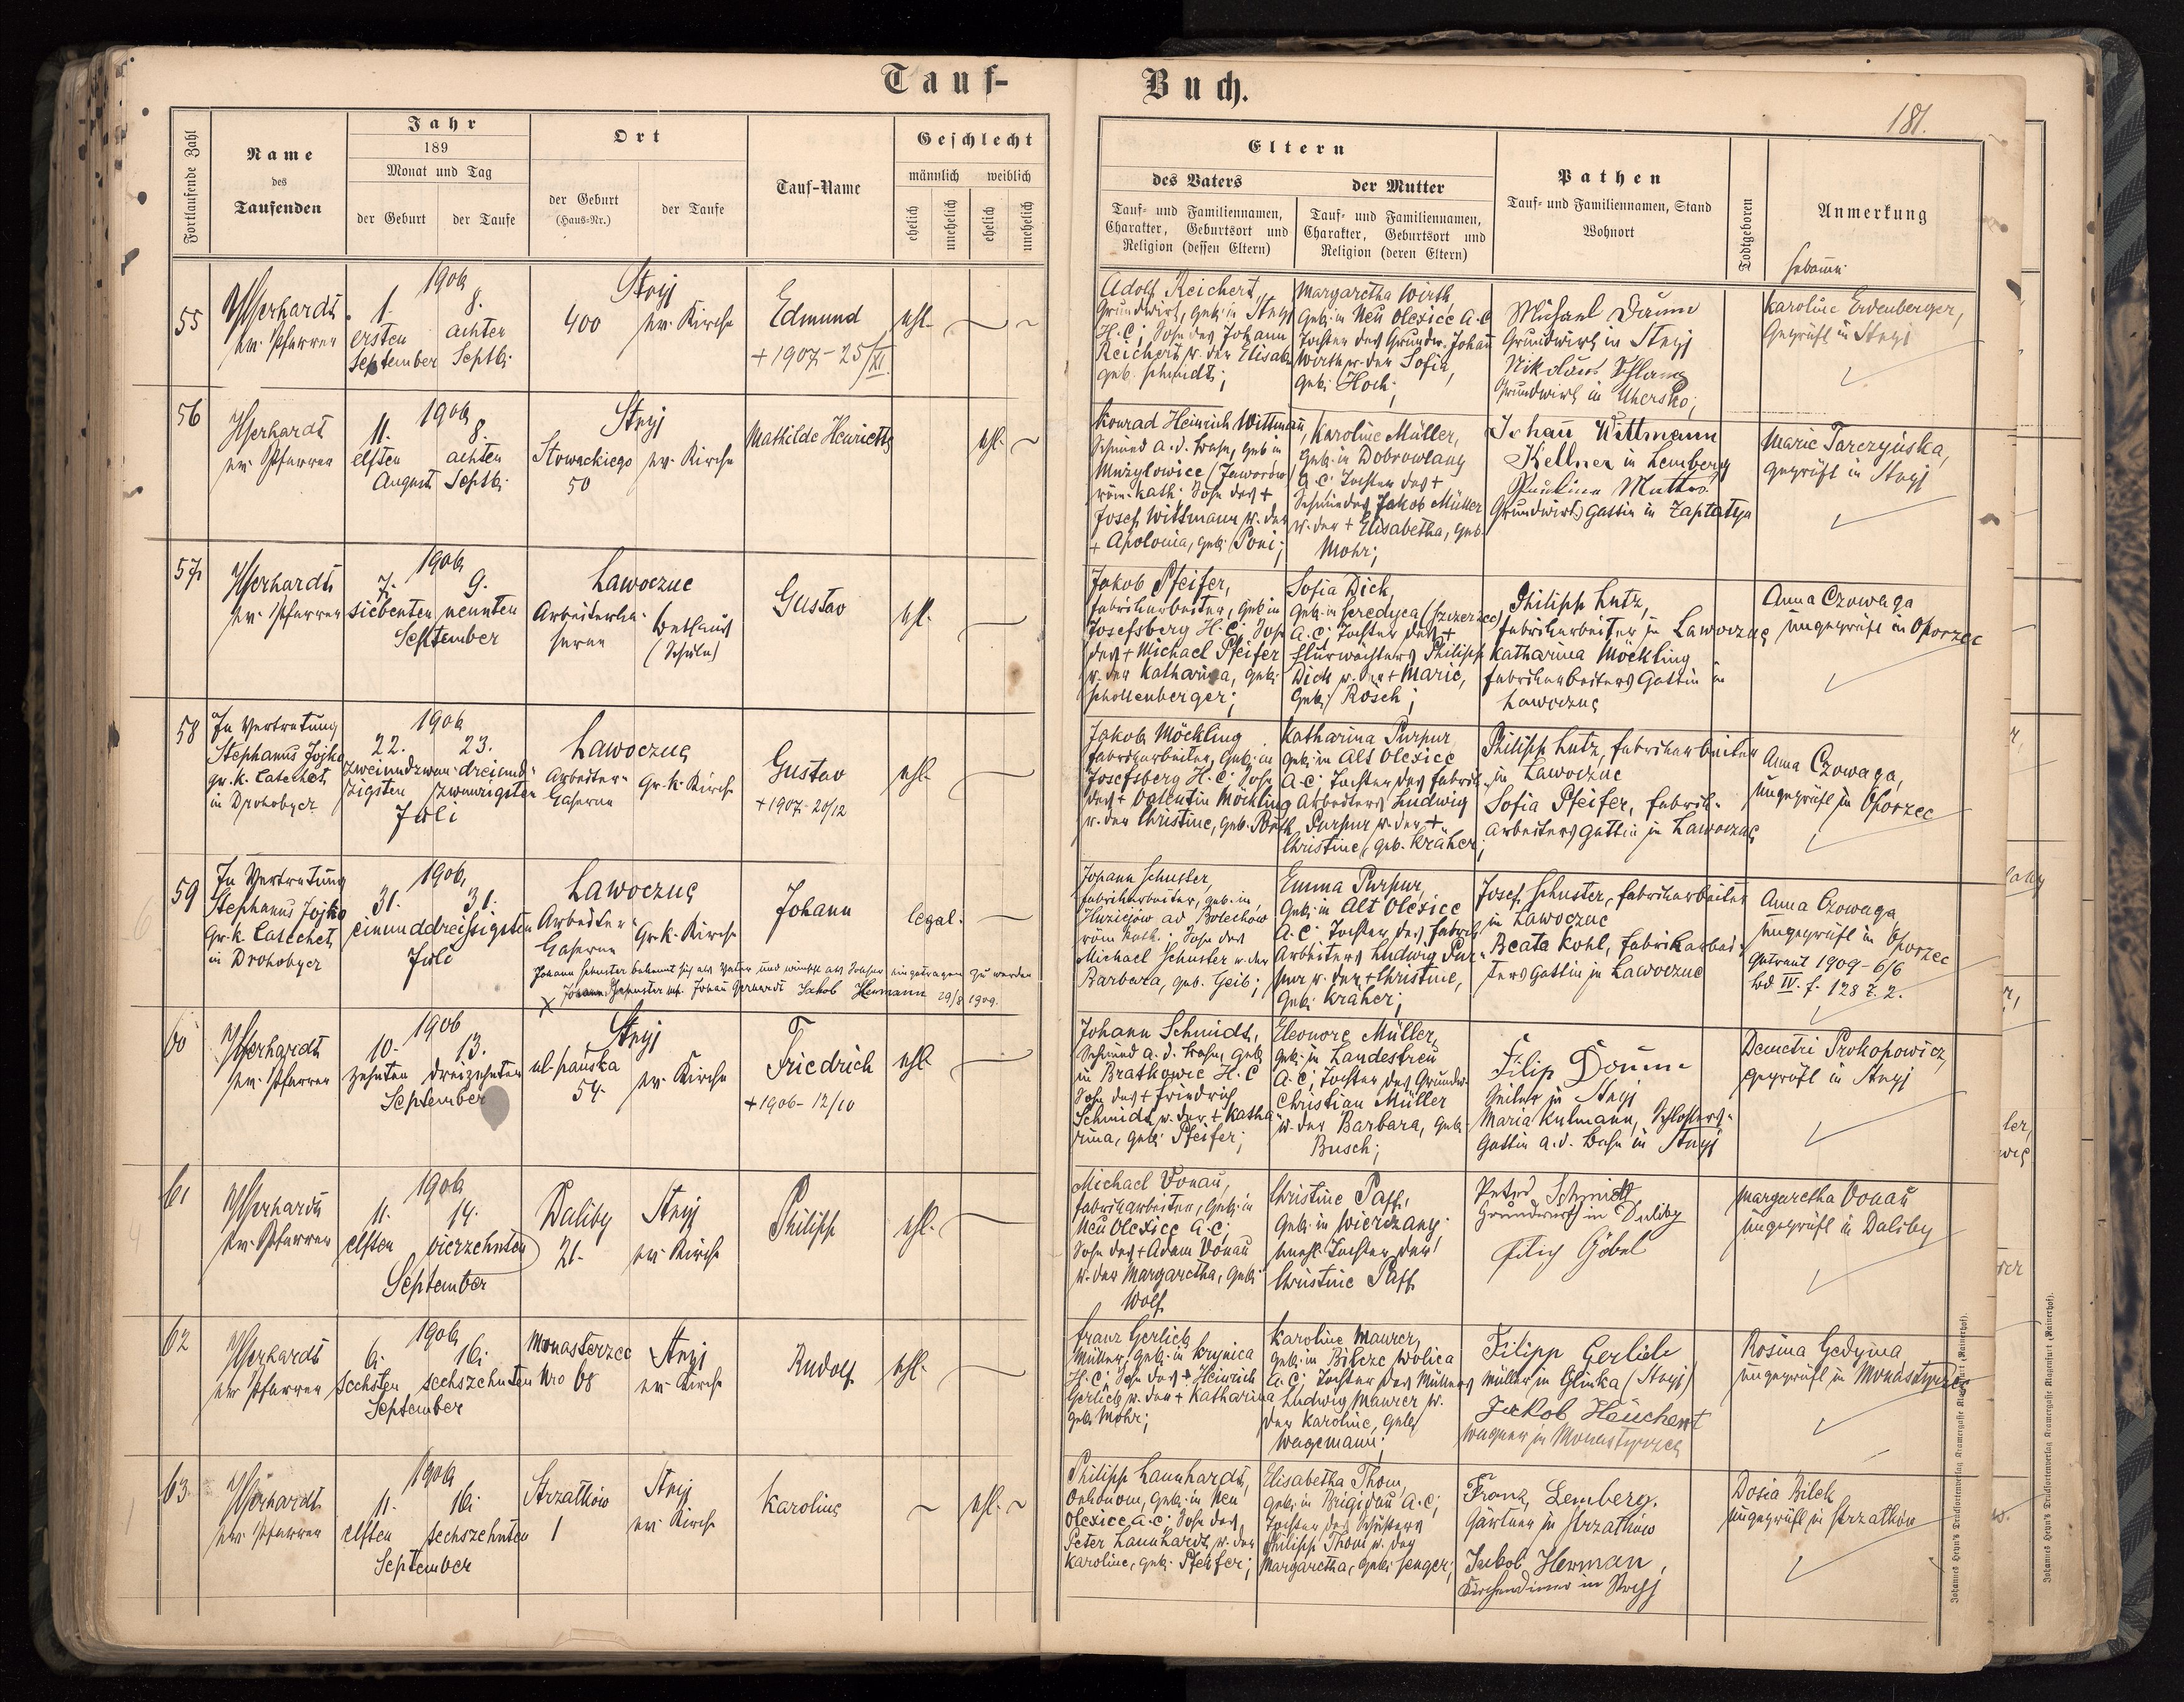 Tauf- Buch.
181.
Fortlaufende Zahl
Name
des
Taufenden
Jahr
189
Monat und Tag
der Geburt
der Taufe
Ort
der Geburt
(Haus-Nr.)
der Taufe
Tauf-Name
Geschlecht
männlich
weiblich
ehelich
unehelich
ehelich
unehelich
Eltern
des Vaters
Tauf- und Familiennamen,
Charakter, Geburtsort und
Religion (dessen Eltern)
der Mutter
Tauf- und Familiennamen,
Charakter, Geburtsort und
Religion (deren Eltern)
Pathen
Tauf- und Familiennamen, Stand
Wohnort
Todtgeboren
Anmerkung
55
ev. Pfarrer
1906
1. 8.
ersten achten
September Septb.
Stryj
400 ev. Kirche
Edmund
+ 1907 - 25/XI.
ehl.
Adolf Reichert,
Grundwirt, geb. in Stryj
H.C; Sohn des Johann
Reichert u. der Elisab.
geb. Schmidt;
Margaretha Wirth,
geb. in Neu Olexice A.C
Tochter des Grundw. Johann
Wirth u. der Sofia,
geb. Hoch;
Michael Daum
Grundwirth in Stryj
Nikolaus
Grundwirth in Uhersko;
Karoline Erdenberger,
Geprüft in Stryj
56
ev. Pfarrer
1906
11. 8.
elften achten
August Septb.
Stryj
Słowackiego ev. Kirche
50
Mathilde Henriette
ehl.
Konrad Heinrich Wittmann,
Schmied a. d. Bahn, geb. in
Mużyłowice (Jaworów)
röm. kath. Sohn des +
Josef Wittmann u. der
+ Apolonia, geb. Poni;
Karoline Müller,
geb. in Dobrowlany
A.C; Tochter des +
Schmiedes Jakob Müller
u. der + Elisabetha, geb.
Mohr;
Johann Wittmann
Kellner in Lemberg
Pauline
Grundwirts Gattin in Zaplatyn
Marie Tarczyńska,
geprüft in Stryj
57
ev. Pfarrer
1906
7. 9.
siebenten neunten
September
Lawoczne
Arbeiterka-
serne
Bethaus
(Schule)
Gustav
ehl.
Jakob Pfeifer,
Fabrikarbeiter, geb. in
Josefsberg H.C; Sohn
des + Michael Pfeifer
u. der Katharina, geb.
Schollenberger;
Sofia Dick,
A.C; Tochter des +
Flurwächters Philipp
Dick u. der + Marie,
geb. Rosch;
Philipp Lutz,
Fabrikarbeiter in Lawoczne
Katharina Möckling
Fabrikarbeiters Gattin in
Lawoczne
Anna Czowaga
ungeprüft in Oporzec
58
In Vertretung
Stephanus Jojko
gr. k. Catechet
in Drohobycz
1906
22. 23.
zweiundzwan- dreiund-
zigsten zwanzigsten
Juli
Lawoczne
Arbeiter-
Caserne
Gr. k. Kirche
Gustav
+ 1907 - 20/12
ehl.
Jakob Möckling
Fabrikarbeiter, geb. in
Josefsberg H.C; Sohn
des + Valentin Möckling
u. der Christine, geb.
Katharina Purpur
geb. in Alt Olexice
A.C; Tochter des Fabrik-
arbeiters Ludwig
Purpur u. der +
Christine, geb. Kräher;
Philipp Lutz, Fabrikarbeiter
in Lawoczne
Sofia Pfeifer, Fabrik-
arbeiters Gattin in Lawoczne
Anna Czowaga,
ungeprüft in Oporzec
59
In Vertretung
Stephanus Jojko
Gr. k. Catechet
in Drohobycz
1906
31. 31.
einunddreissigsten
Juli
Lawoczne
Arbeiter
Caserne
Gr. k. Kirche
Johann
legal.
Johann Schuster bekennt sich als Vater und wünscht als solcher eingetragen zu werden
Jakob Hermann 29/8 1909.
Johann Schuster,
Fabrikarbeiter, geb. in
Huziejów ad Bolechów
röm. kath. Sohn des
Michael Schuster u. der
Barbara, geb. Geib;
Emma Purpur,
geb. in Alt Olexice
A.C; Tochter des Fabrik-
arbeiters Ludwig Pur-
pur u. der + Christine,
geb. Kräher;
Josef Schuster, Fabrikarbeiter
in Lawoczne
Beata Kohl, Fabrikarbei-
ters Gattin in Lawoczne
Anna Czowaga
ungeprüft in Oporzec
Getraut 1909 - 6/6
Bd IV. f. 128 Z. 2.
60
ev. Pfarrer
1906
10. 13.
zehnten dreizehnten
September
Stryj
ul. Pańska
54. ev. Kirche
Friedrich
+ 1906 - 12/10
ehl.
Johann Schmidt,
Schmied a. d. Bahn, geb.
in Bratkowic H.C
Sohn des + Friedrich
Schmidt u. der + Katha
rina, geb. Pfeifer;
Eleonore Müller,
geb. in Landestreu
A.C; Tochter des Grundw.
Christian Müller
u. der Barbara, geb.
Busch;
Filip
Seiler in Stryj
Maria Kulmann, Schlossers-
Gattin a. d. Bahn in Stryj
Demetri Prokopowicz
geprüft in Stryj
61
ev. Pfarrer
1906
11. 14.
elften vierzehnten
September
Duliby
21.
Stryj
ev. Kirche
Philipp
ehl.
Michael Vonau,
Fabrikarbeiter, geb. in
Neu Olexice A.C;
Sohn des + Adam Vonau
u. der Margaretha, geb.
Wolf
Christine Paff,
geb. in Wierczany
unehl. Tochter der
Christine Paff
Peter Schmidt
Grundwirth in Duliby
Filip Göbel
Margaretha Vonau
ungeprüft in Duliby
62
ev. Pfarrer
1906
6. 16.
sechsten sechszehnten
September
Monasterzec
Nro 68
Stryj
ev. Kirche
Rudolf
ehl.
Franz Gerlich
Müller, geb. in Krynica
H.C; Sohn des + Heinrich
Gerlich u. der + Katharina
geb. Mohr;
Karoline Maurer,
geb. in Bilcze Wolica
A.C; Tochter des Müllers
Ludwig Maurer u.
der Karoline, geb.
Wagemann;
Filipp Gerlich
Müller in Glinka (Stryj)
Jakob
Wagner in Monasterzec
Rosina Gedyma
ungeprüft in Monasterzec
63
ev. Pfarrer
1906
11. 16.
elften sechszehnten
September
Strzałków
1
Stryj
ev. Kirche
Karoline
ehl.
Philipp Launhardt,
Oekonom, geb. in Neu
Olexice A.C; Sohn des
Peter Launhardt u. der
Karoline, geb. Pfeifer;
Elisabetha Thom,
geb. in Brigidau A.C;
Tochter des Schusters
Philipp Thom u. der
Margaretha, geb. Senger;
Franz Lemberg.
Gärtner in Strzałków
Jakob Herman,
Kirchendiener in Stryj
Dosia Bilek
ungeprüft in Strzałków
Johannes Heyn's Drucksortenverlag Kramergasse Klagenfurt (Rainerhof).
Johannes Heyn's Drucksortenverlag Kramergasse Klagenfurt (Rainerhof).